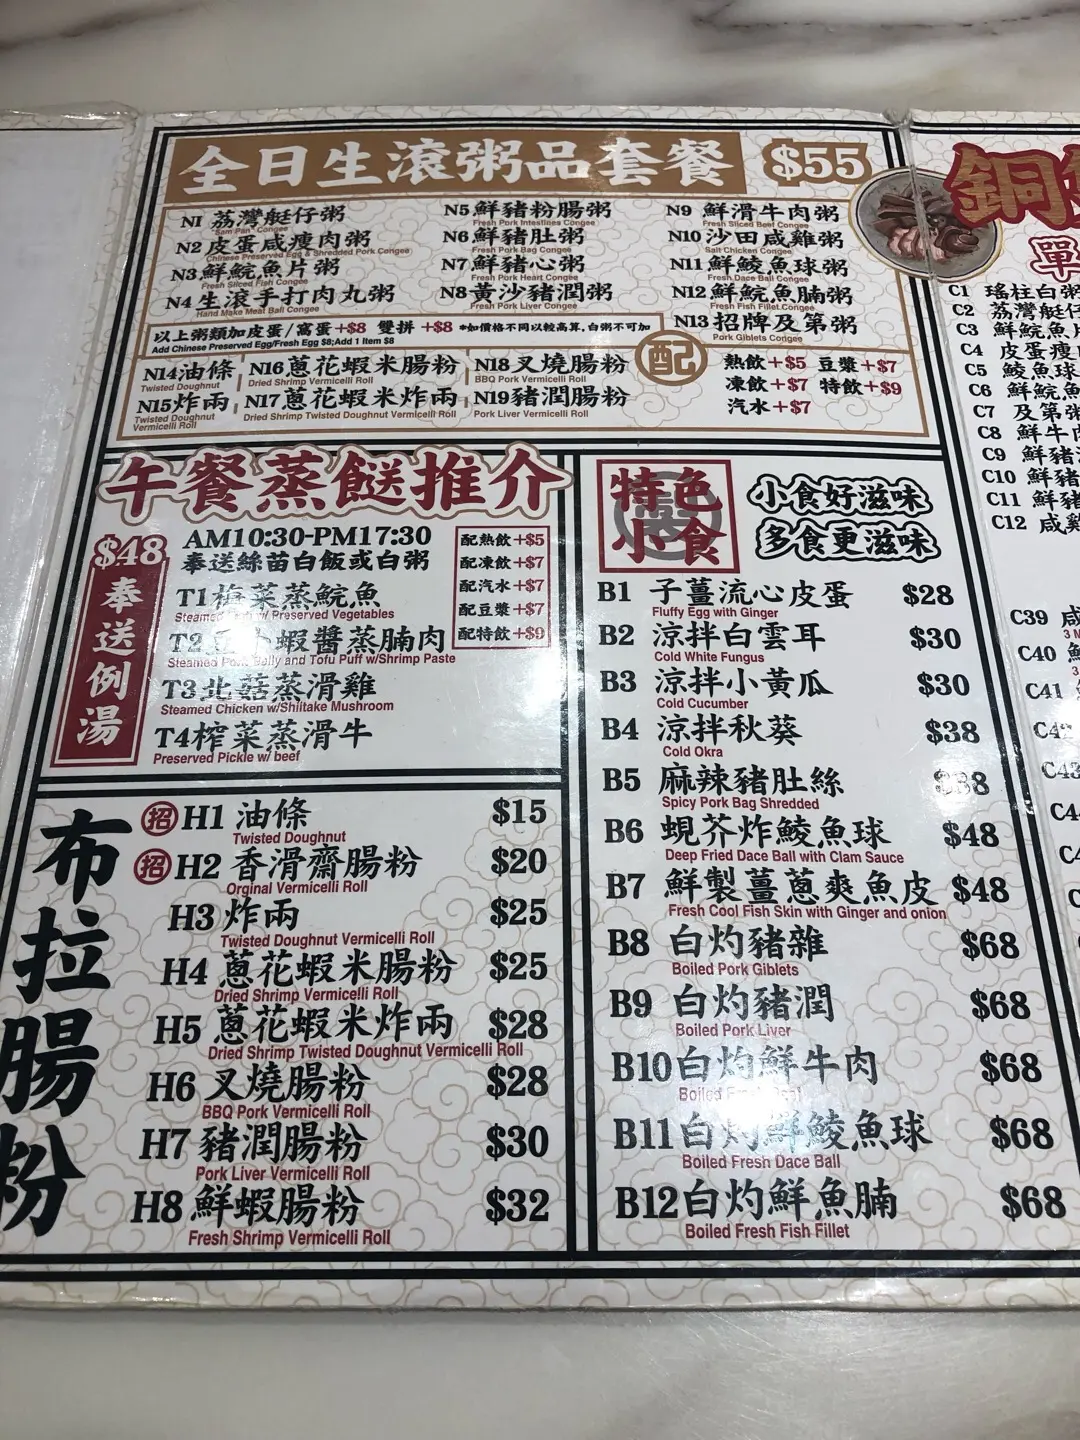 全日生滾粥品套餐 $55
N1 荔灣艇仔粥
"Sam Pan" Congee
N2 皮蛋咸瘦肉粥
Chinese Preserved Egg & Shredded Pork Congee
N3 鮮鯇魚片粥
Fresh Sliced Fish Congee
N4 生滾手打肉丸粥
Hand Make Meat Ball Congee
N5 鮮豬粉腸粥
Fresh Pork Intestines Congee
N6 鮮豬肚粥
Fresh Pork Bag Congee
N7 鮮豬心粥
Fresh Pork Heart Congee
N8 黃沙豬潤粥
Fresh Pork Liver Congee
N9 鮮滑牛肉粥
Fresh Sliced Beef Congee
N10 沙田咸雞粥
Salt Chicken Congee
N11 鮮鯪魚球粥
Fresh Dace Ball Congee
N12 鮮鯇魚腩粥
Fresh Fish Fillet Congee
N13 招牌及第粥
Pork Giblets Congee
以上粥類加皮蛋/窩蛋+$8 雙拼 +$8 *如價格不同以較高算,白粥不可加
Add Chinese Preserved Egg/Fresh Egg $8;Add 1 Item $8
N14 油條
Twisted Doughnut
N15 炸兩
Twisted Doughnut
Vermicelli Roll
N16 蔥花蝦米腸粉
Dried Shrimp Vermicelli Roll
N17 蔥花蝦米炸兩
Dried Shrimp Twisted Doughnut Vermicelli Roll
N18 叉燒腸粉
BBQ Pork Vermicelli Roll
N19 豬潤腸粉
Pork Liver Vermicelli Roll
配
熱飲+$5 豆漿+$7
凍飲+$7 特飲+$9
汽水+$7
午餐蒸餸推介
$48
奉送例湯
AM10:30-PM17:30
奉送絲苗白飯或白粥
T1 梅菜蒸鯇魚
Preserved Vegetables
T2 蝦醬蒸腩肉
Steamed Pork Belly and Tofu Puff w/Shrimp Paste
T3 北菇蒸滑雞
Steamed Chicken w/Shiitake Mushroom
T4 榨菜蒸滑牛
Preserved Pickle w/ beef
配熱飲+$5
配凍飲+$7
配汽水+$7
配豆漿+$7
配特飲+$9
布拉腸粉
招 H1 油條 $15
Twisted Doughnut
招 H2 香滑齋腸粉 $20
Orginal Vermicelli Roll
H3 炸兩 $25
Twisted Doughnut Vermicelli Roll
H4 蔥花蝦米腸粉 $25
Dried Shrimp Vermicelli Roll
H5 蔥花蝦米炸兩 $28
Dried Shrimp Twisted Doughnut Vermicelli Roll
H6 叉燒腸粉 $28
BBQ Pork Vermicelli Roll
H7 豬潤腸粉 $30
Pork Liver Vermicelli Roll
H8 鮮蝦腸粉 $32
Fresh Shrimp Vermicelli Roll
特色
小食
小食好滋味
多食更滋味
B1 子薑流心皮蛋 $28
Fluffy Egg with Ginger
B2 涼拌白雲耳 $30
Cold White Fungus
B3 涼拌小黃瓜 $30
Cold Cucumber
B4 涼拌秋葵 $38
Cold Okra
B5 麻辣豬肚絲
Spicy Pork Bag Shredded
B6 蜆芥炸鯪魚球 $48
Deep Fried Dace Ball with Clam Sauce
B7 鮮製薑蔥爽魚皮 $48
Fresh Cool Fish Skin with Ginger and onion
B8 白灼豬雜 $68
Boiled Pork Giblets
B9 白灼豬潤 $68
Boiled Pork Liver
B10 白灼鮮牛肉 $68
Boiled
B11 白灼鮮鯪魚球 $68
Boiled Fresh Dace Ball
B12 白灼鮮魚腩 $68
Boiled Fresh Fish Fillet
銅
單
C1 瑤柱白粥
C2 荔灣艇仔
C3 鮮鯇魚片
C4 皮蛋瘦肉
C5 鯪魚球
C6 鮮鯇魚
C7 及第粥
C8 鮮牛肉
C9 鮮豬
C10 鮮豬
C11 鮮豬
C12 咸雞
C39 咸
C40
C41
C42
C43